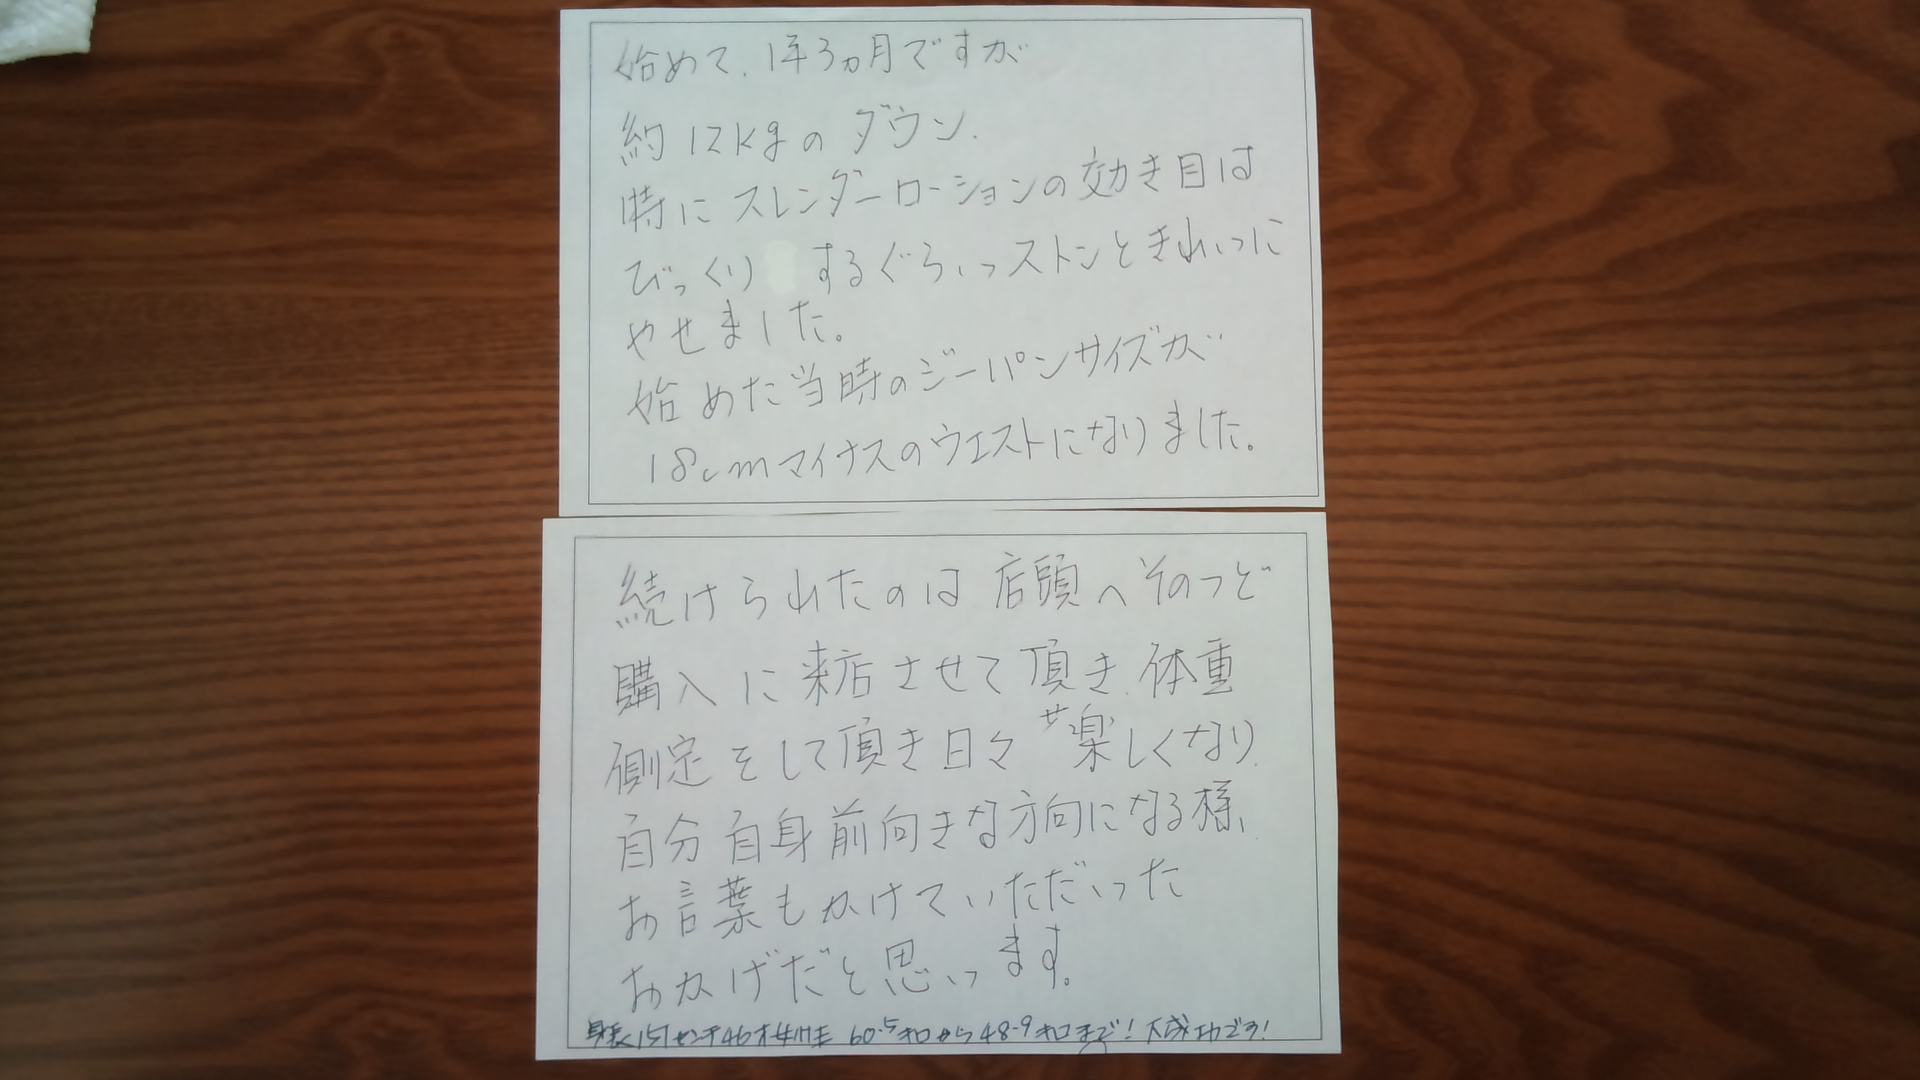 始めて、1年3ヵ月ですが
約12kgのダウン.
特にスレンダーローションの効き目は
びっくり するぐらいストンときれいに
やせました。
始めた当時のジーパンサイズが
18cmマイナスのウエストになりました。
続けられたのは店頭へそのつど
購入に来店させて頂き、体重
測定をして頂き日々が楽しくなり、
自分自身前向きな方向になる様、
お言葉もかけていただいった
おかげだと思います。
身長151センチ46才女性 60.5キロから48.9キロまで!大成功です!